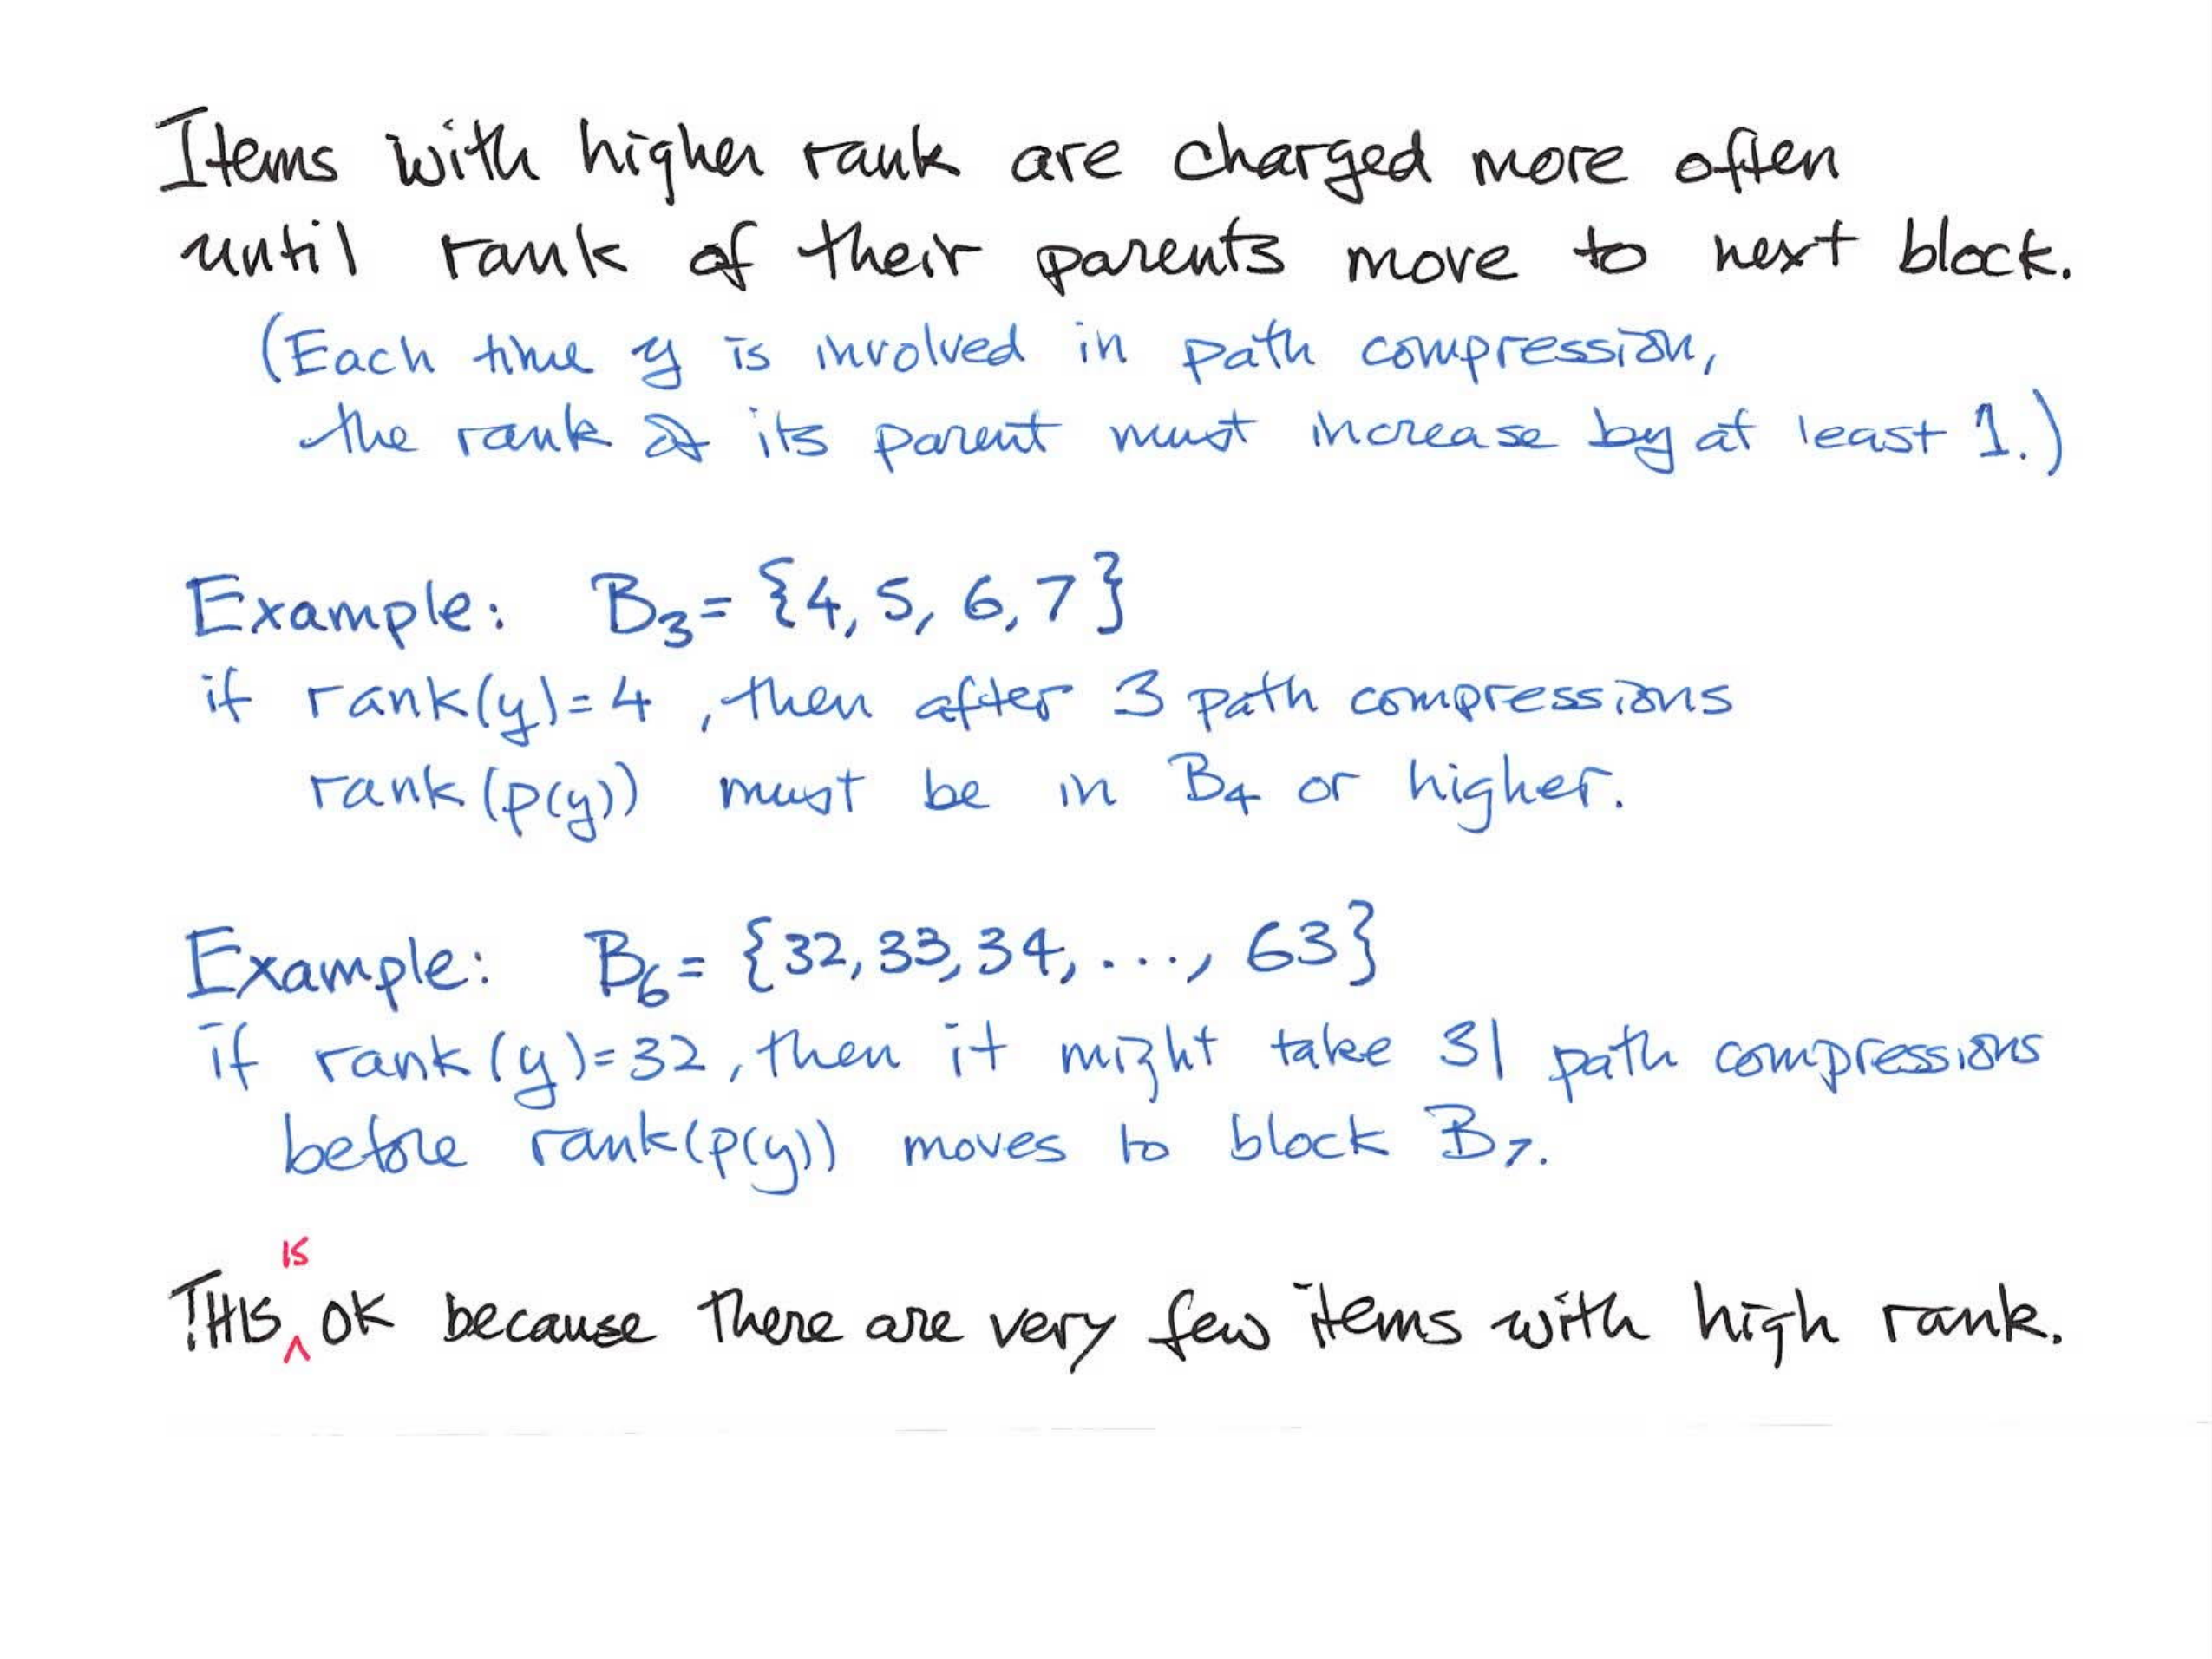 Items with higher rank are charged more often
until rank of their parents move to next block.
(Each time y is involved in path compression,
the rank of its parent must increase by at least 1.)
Example: B₃ = {4, 5, 6, 7}
if rank(y) = 4, then after 3 path compressions
rank(p(y)) must be in B₄ or higher.
Example: B₆ = {32, 33, 34, ..., 63}
if rank(y) = 32, then it might take 31 path compressions
before rank(p(y)) moves to block B₇.
is
This ^ OK because there are very few items with high rank.